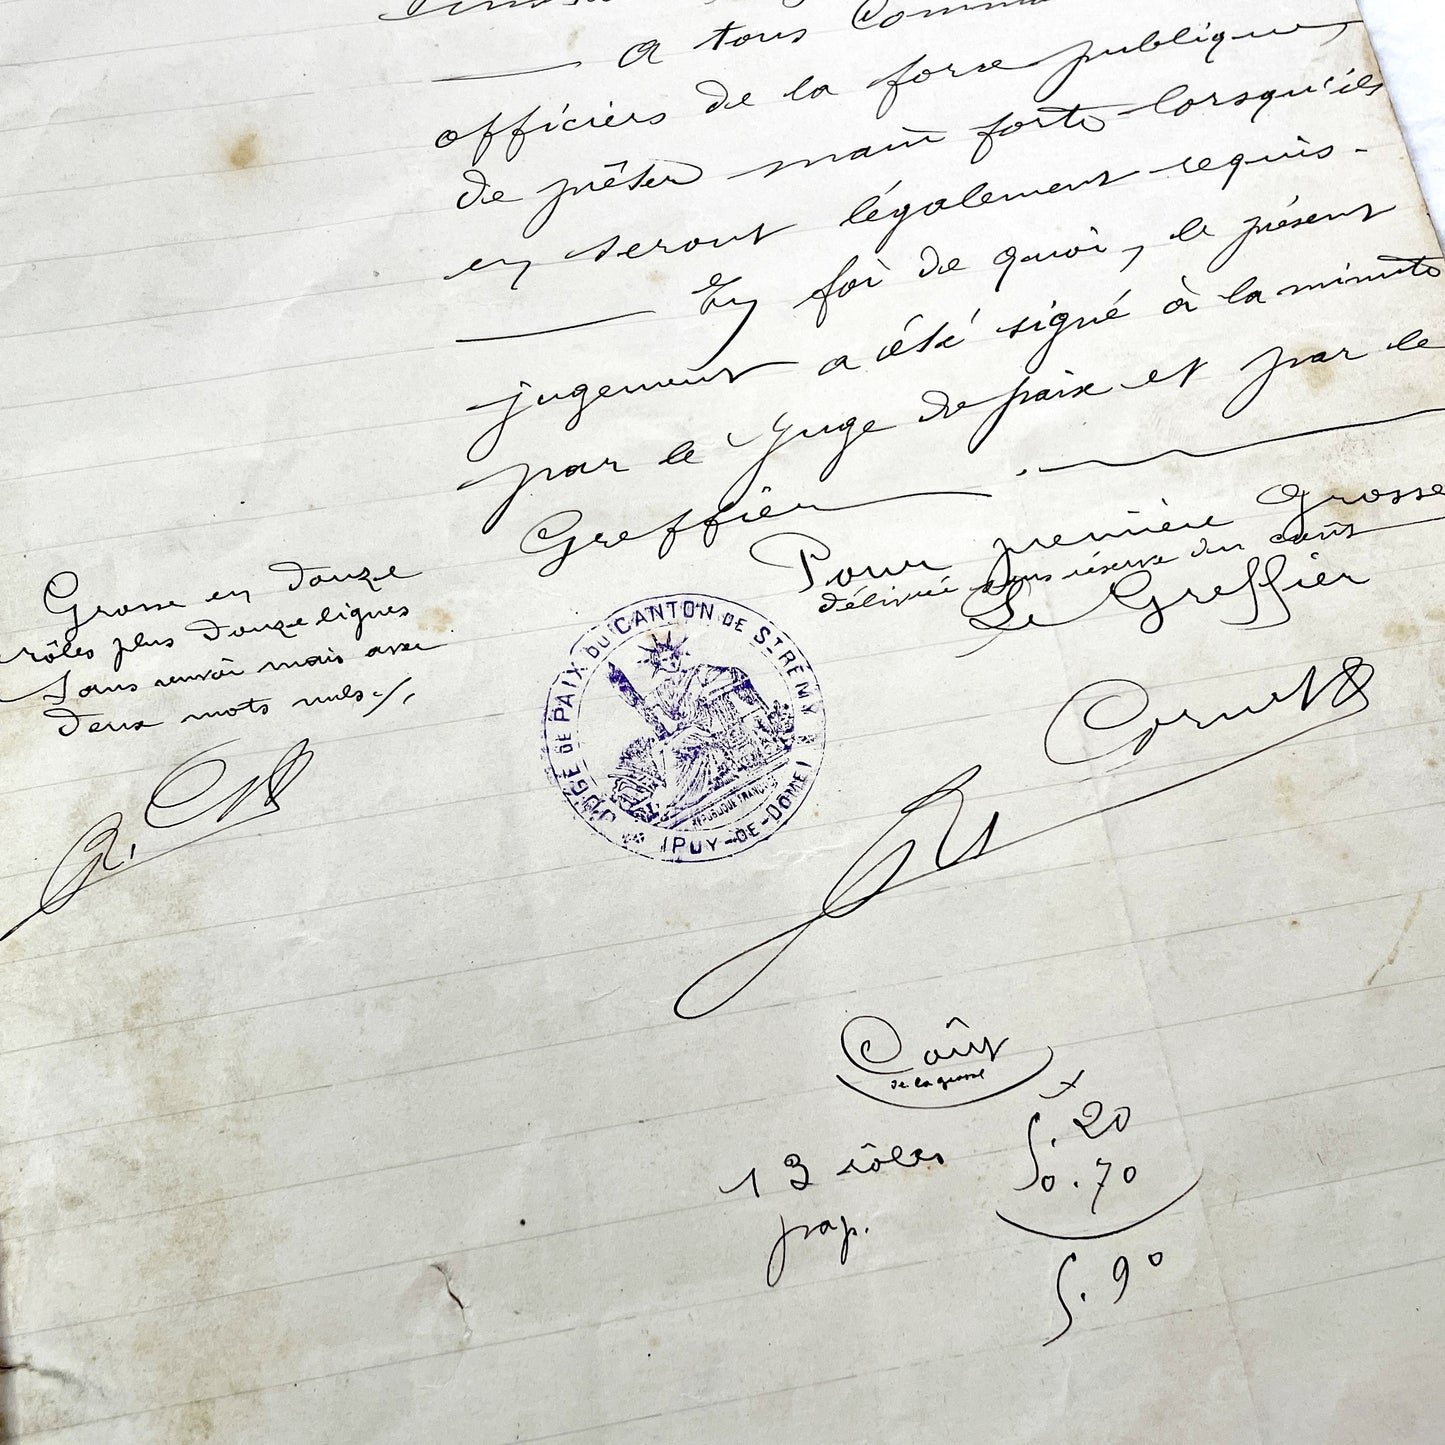 A tous Comman
officiers de la force publique,
de prêter main forte lorsqu'ils
en seront légalement requis.
En foi de quoi, le présent
jugement a été signé à la minute
par le Juge de paix et par le
Greffier
Pour première Grosse
délivrée sous réserve du coût
Le Greffier
Cornet
Grosse en douze
rôles plus douze lignes
sans renvoi mais avec
deux mots nuls
JUGE DE PAIX DU CANTON DE ST RÉMY
RÉPUBLIQUE FRANÇAISE
(PUY-DE-DÔME)
Coût
de la grosse
13 rôles 5.20
pap. 0.70
5.90